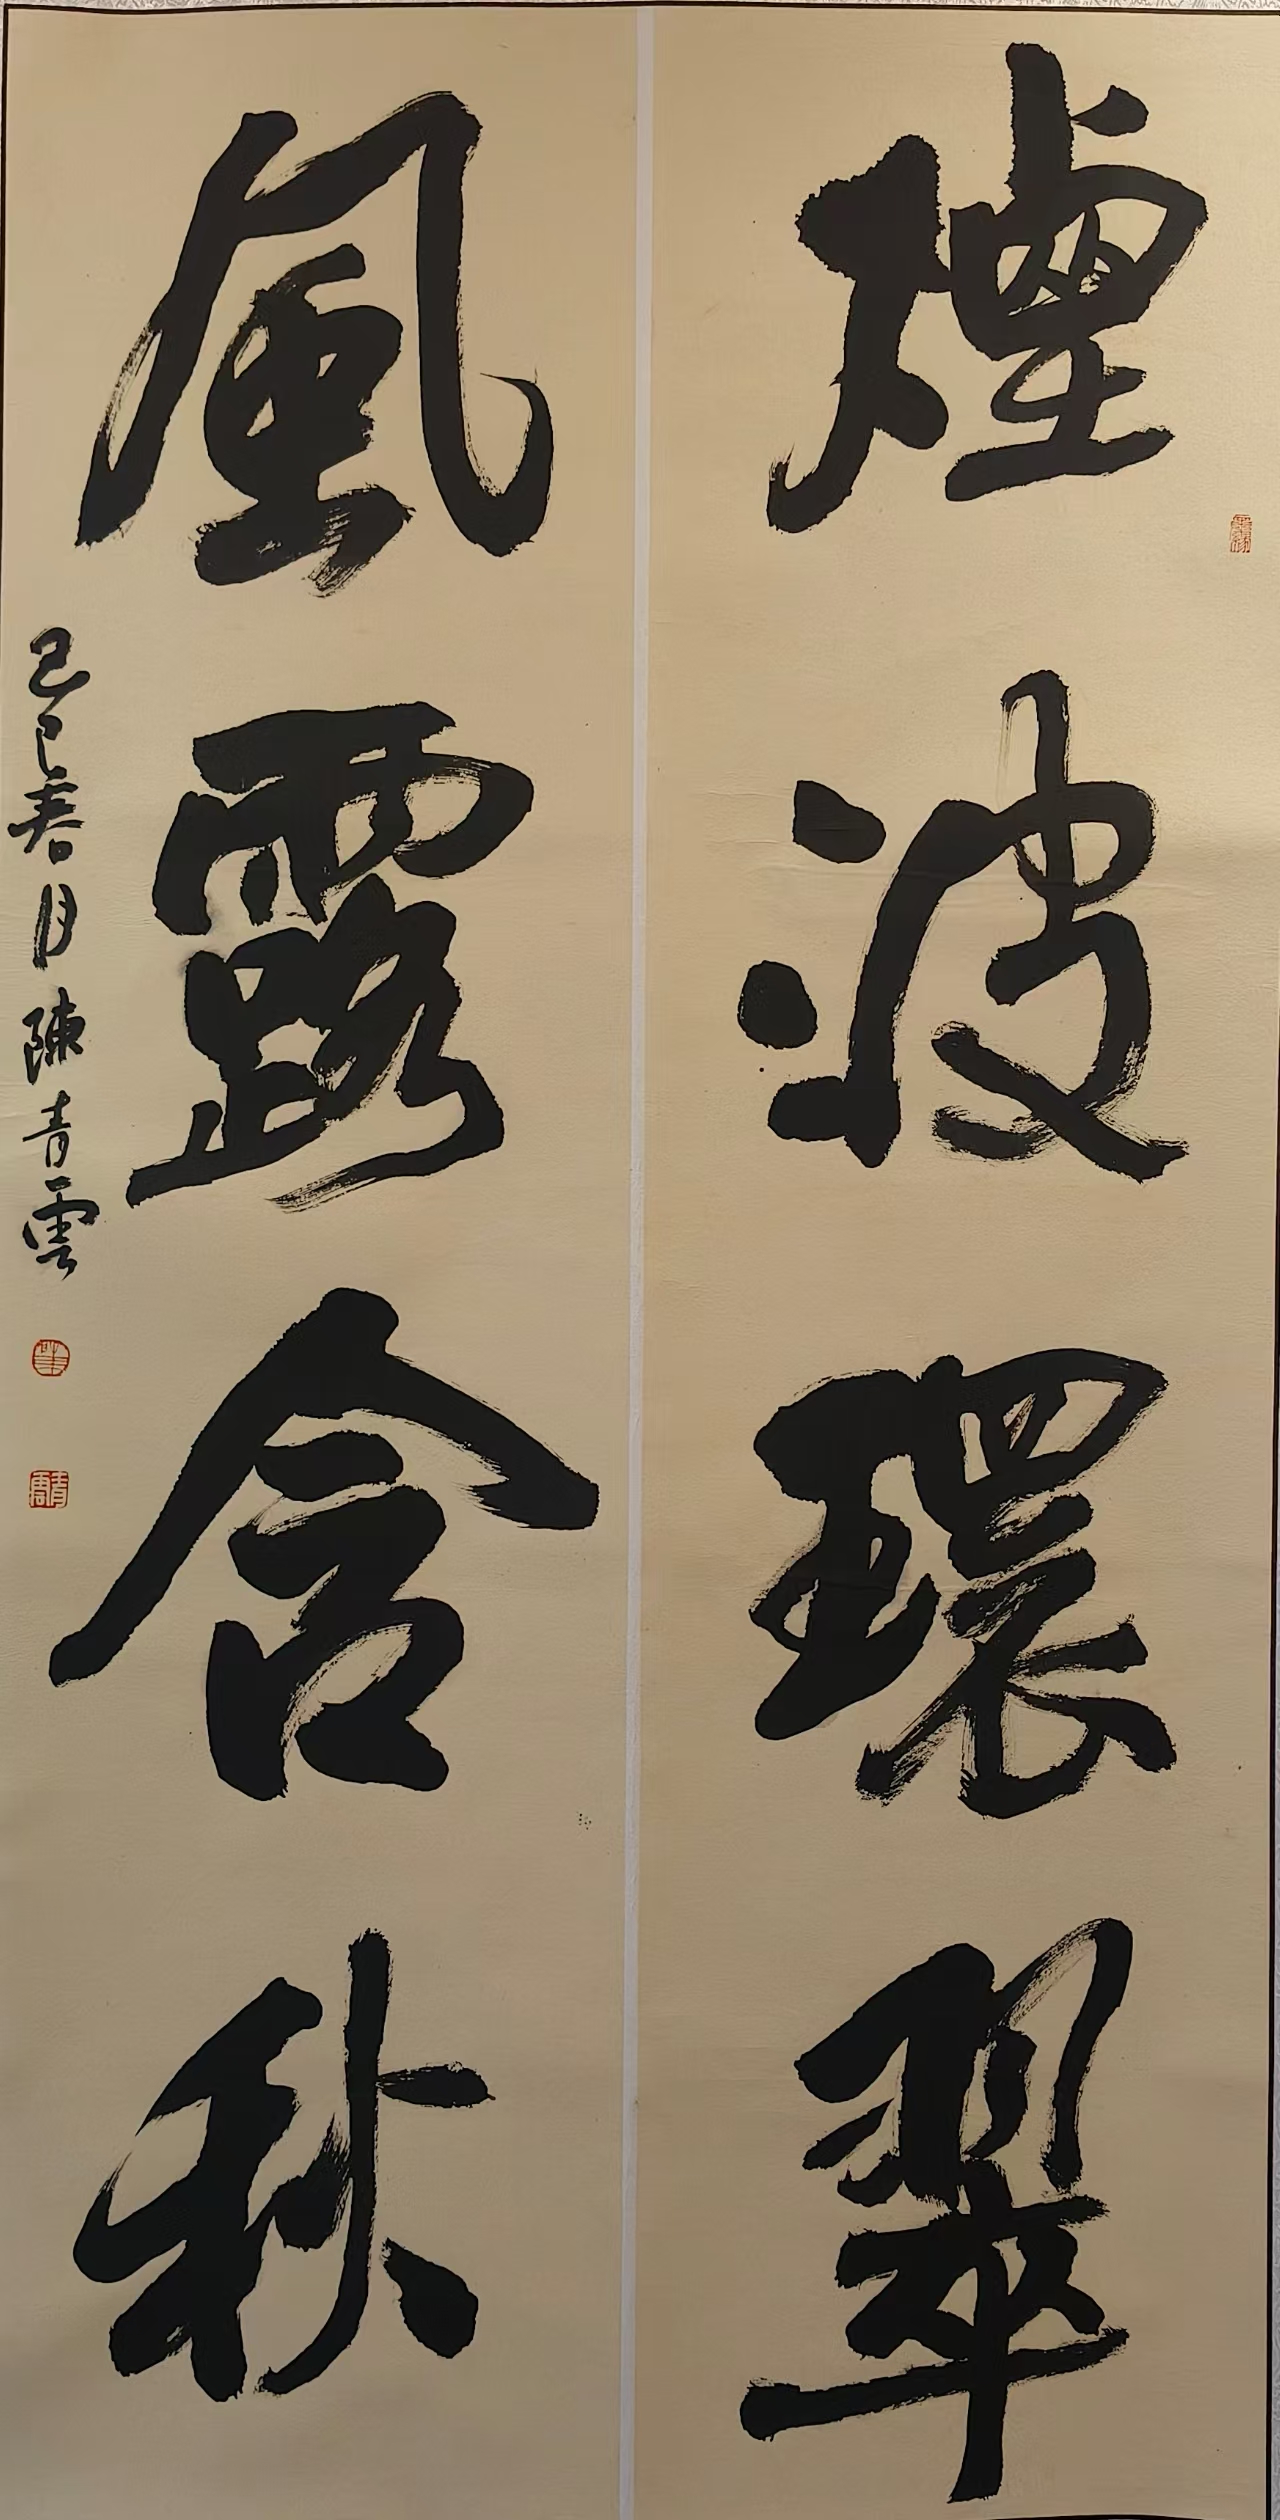 煙波環翠
風露含秋
乙巳春月陳青雲